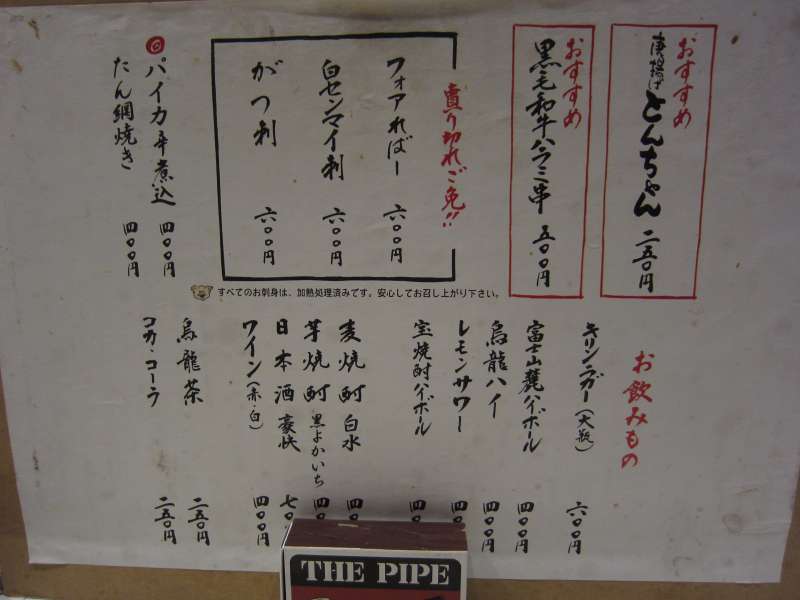 おすすめ
唐揚げとんちゃん 二五〇円
おすすめ
黒毛和牛ハラミ串 五〇〇円
売り切れご免!!
フォアればー 六〇〇円
白センマイ刺 六〇〇円
がつ刺 六〇〇円
パイカ辛煮込 四〇〇円
たん網焼き 四〇〇円
すべてのお刺身は、加熱処理済みです。安心してお召し上がり下さい。
お飲みもの
キリンラガー(大瓶) 六〇〇円
富士山麓ハイボール 四〇〇円
烏龍ハイ 四〇〇円
レモンサワー 四〇
宝焼酎ハイボール 四〇
麦焼酎 白水 四〇
芋焼酎 黒よかいち 四〇
日本酒 豪快 七〇
ワイン(赤・白) 四〇〇円
烏龍茶 二五〇円
コカ・コーラ 二五〇円
THE PIPE